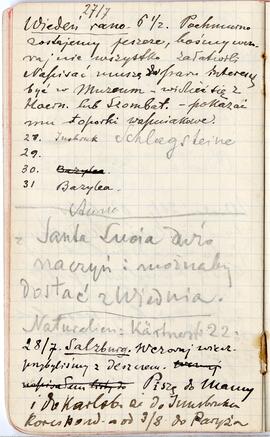 27/7
Wiedeń rano. 6 1/2. Pochmurno
zostajemy jeszcze, bośmy wczo-
raj nie wszystko załatwili
Napisać muszę do
być w Muzeum - widzieć się z
Hoern. lub Szombat. - pokazać
mu toporki wapniakowe.
28. Insbruk Schlagsteine
29.
30. Bazylea
31 Bazylea.
Santa Lucia dużo
naczyń i możnaby
Dostać z Wiednia.
Naturalien: Kärtnerstr 22:
28/7. Salzburg. Wczoraj wiecz.
przybyliśmy z deszczem.
Piszę do Mamy
i do Karlsb. do Innsbruka
Koresp. od 3/8 do Paryża